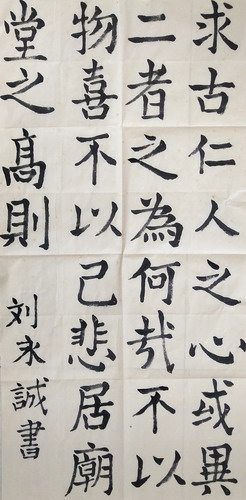 求古仁人之心或異
二者之為何哉不以
物喜不以己悲居廟
堂之高則
刘永誠書